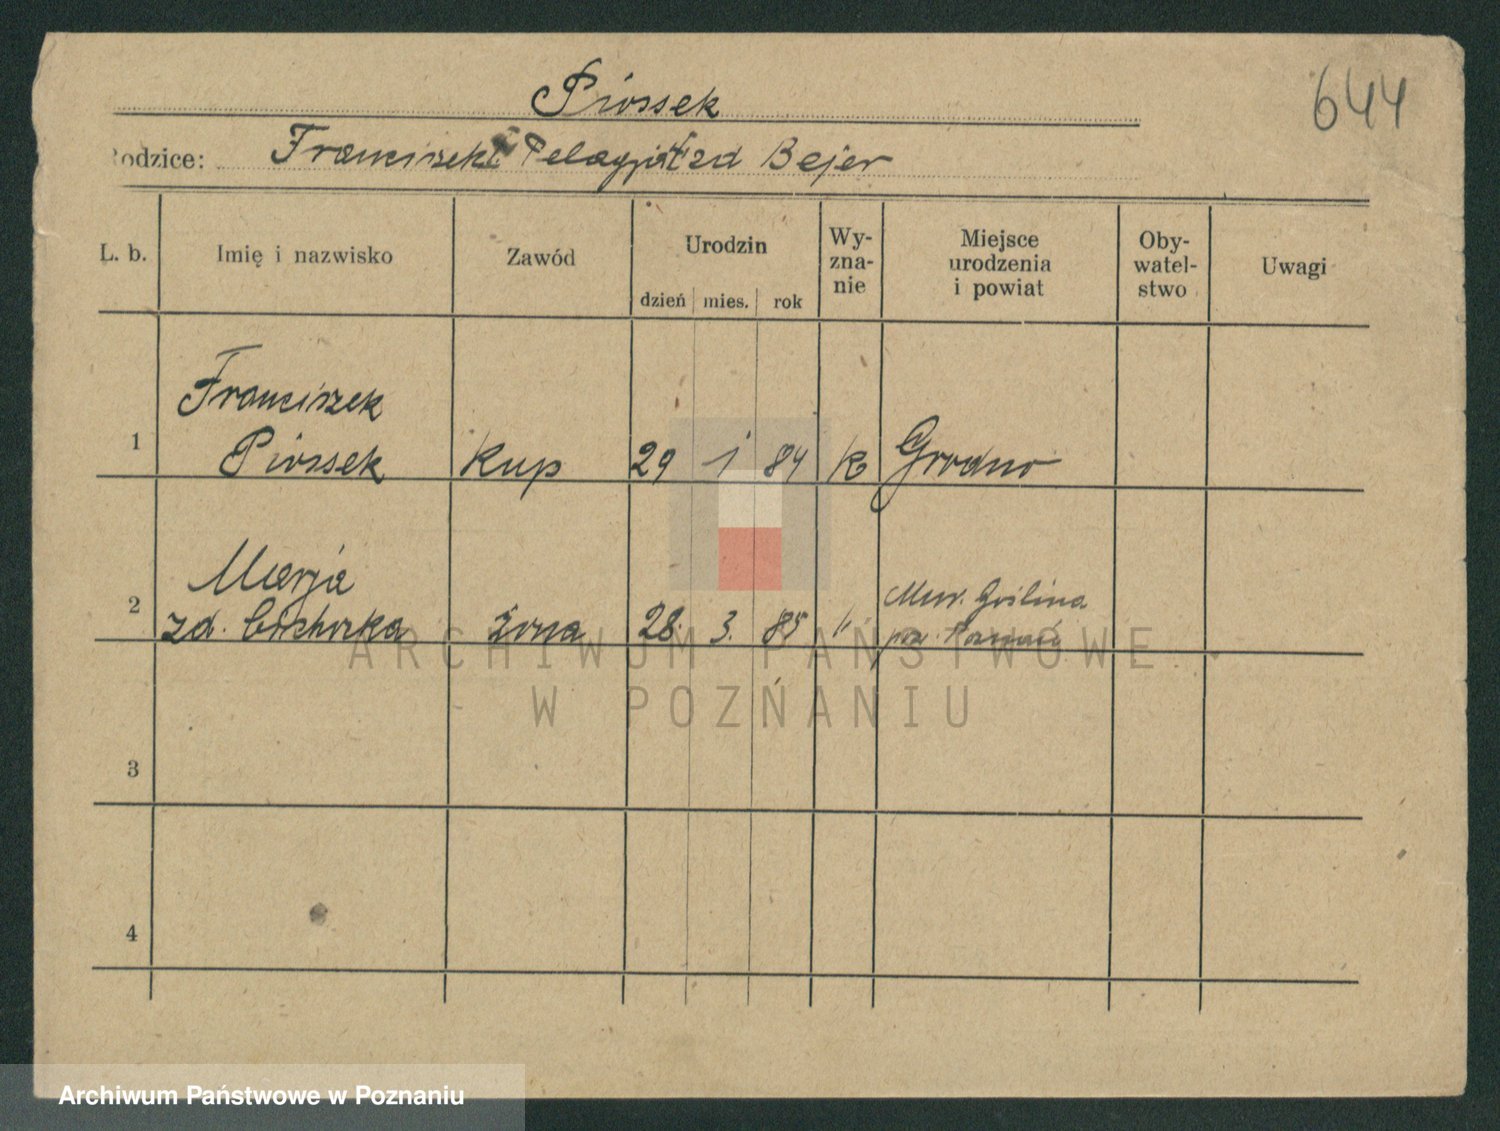 Piossek
644
Rodzice: Franciszek i Pelagja zd Bejer
L. b.
Imię i nazwisko
Zawód
Urodzin
dzień mies. rok
Wy-
zna-
nie
Miejsce
urodzenia
i powiat
Oby-
watel-
stwo
Uwagi
Franciszek
1 Piossek Kup 29 1 84 k Grodno
Marja
2 zd. żona 28. 3. 85 " Mur. Goślina
pow. Poznań
ARCHIWUM PAŃSTWOWE
W POZNANIU
3
4
Archiwum Państwowe w Poznaniu